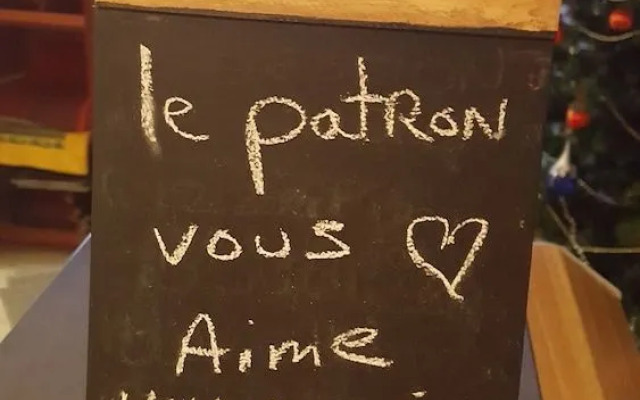 le patron
vous
Aime